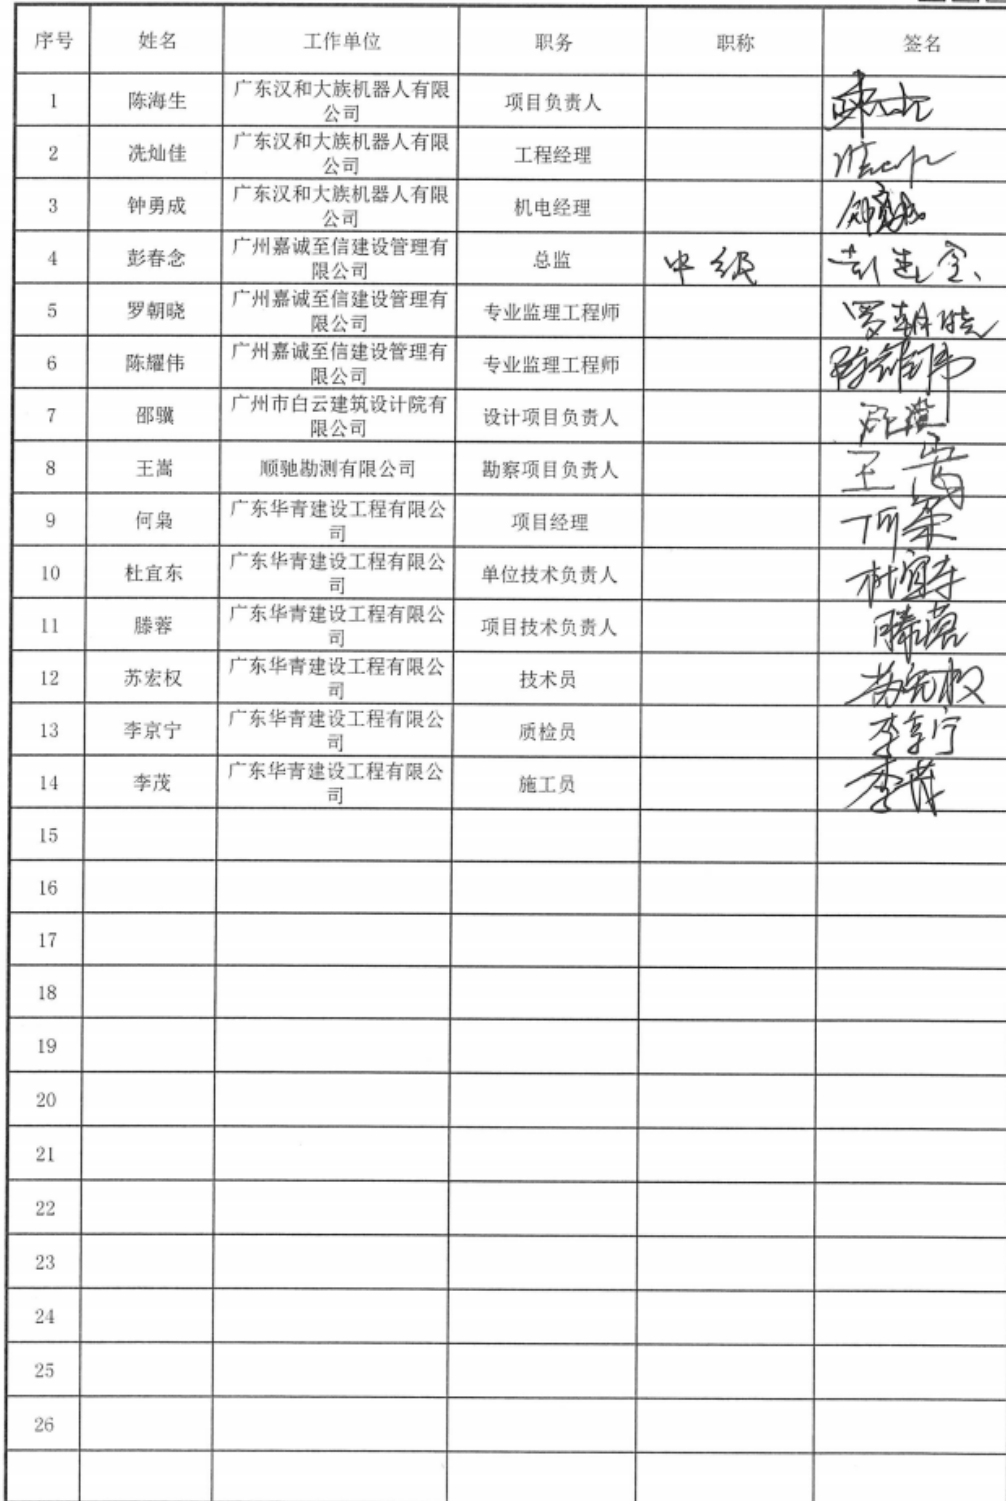 序号 姓名 工作单位 职务 职称 签名
1 陈海生 广东汉和大族机器人有限公司 项目负责人
2 冼灿佳 广东汉和大族机器人有限公司 工程经理
3 钟勇成 广东汉和大族机器人有限公司 机电经理 钟勇成
4 彭春念 广州嘉诚至信建设管理有限公司 总监 中级
5 罗朝晓 广州嘉诚至信建设管理有限公司 专业监理工程师 罗朝晓
6 陈耀伟 广州嘉诚至信建设管理有限公司 专业监理工程师 陈耀伟
7 邵骥 广州市白云建筑设计院有限公司 设计项目负责人
8 王嵩 顺驰勘测有限公司 勘察项目负责人 王嵩
9 何枭 广东华青建设工程有限公司 项目经理 何枭
10 杜宜东 广东华青建设工程有限公司 单位技术负责人 杜宜东
11 滕蓉 广东华青建设工程有限公司 项目技术负责人 滕蓉
12 苏宏权 广东华青建设工程有限公司 技术员 苏宏权
13 李京宁 广东华青建设工程有限公司 质检员 李京宁
14 李茂 广东华青建设工程有限公司 施工员 李茂
15
16
17
18
19
20
21
22
23
24
25
26